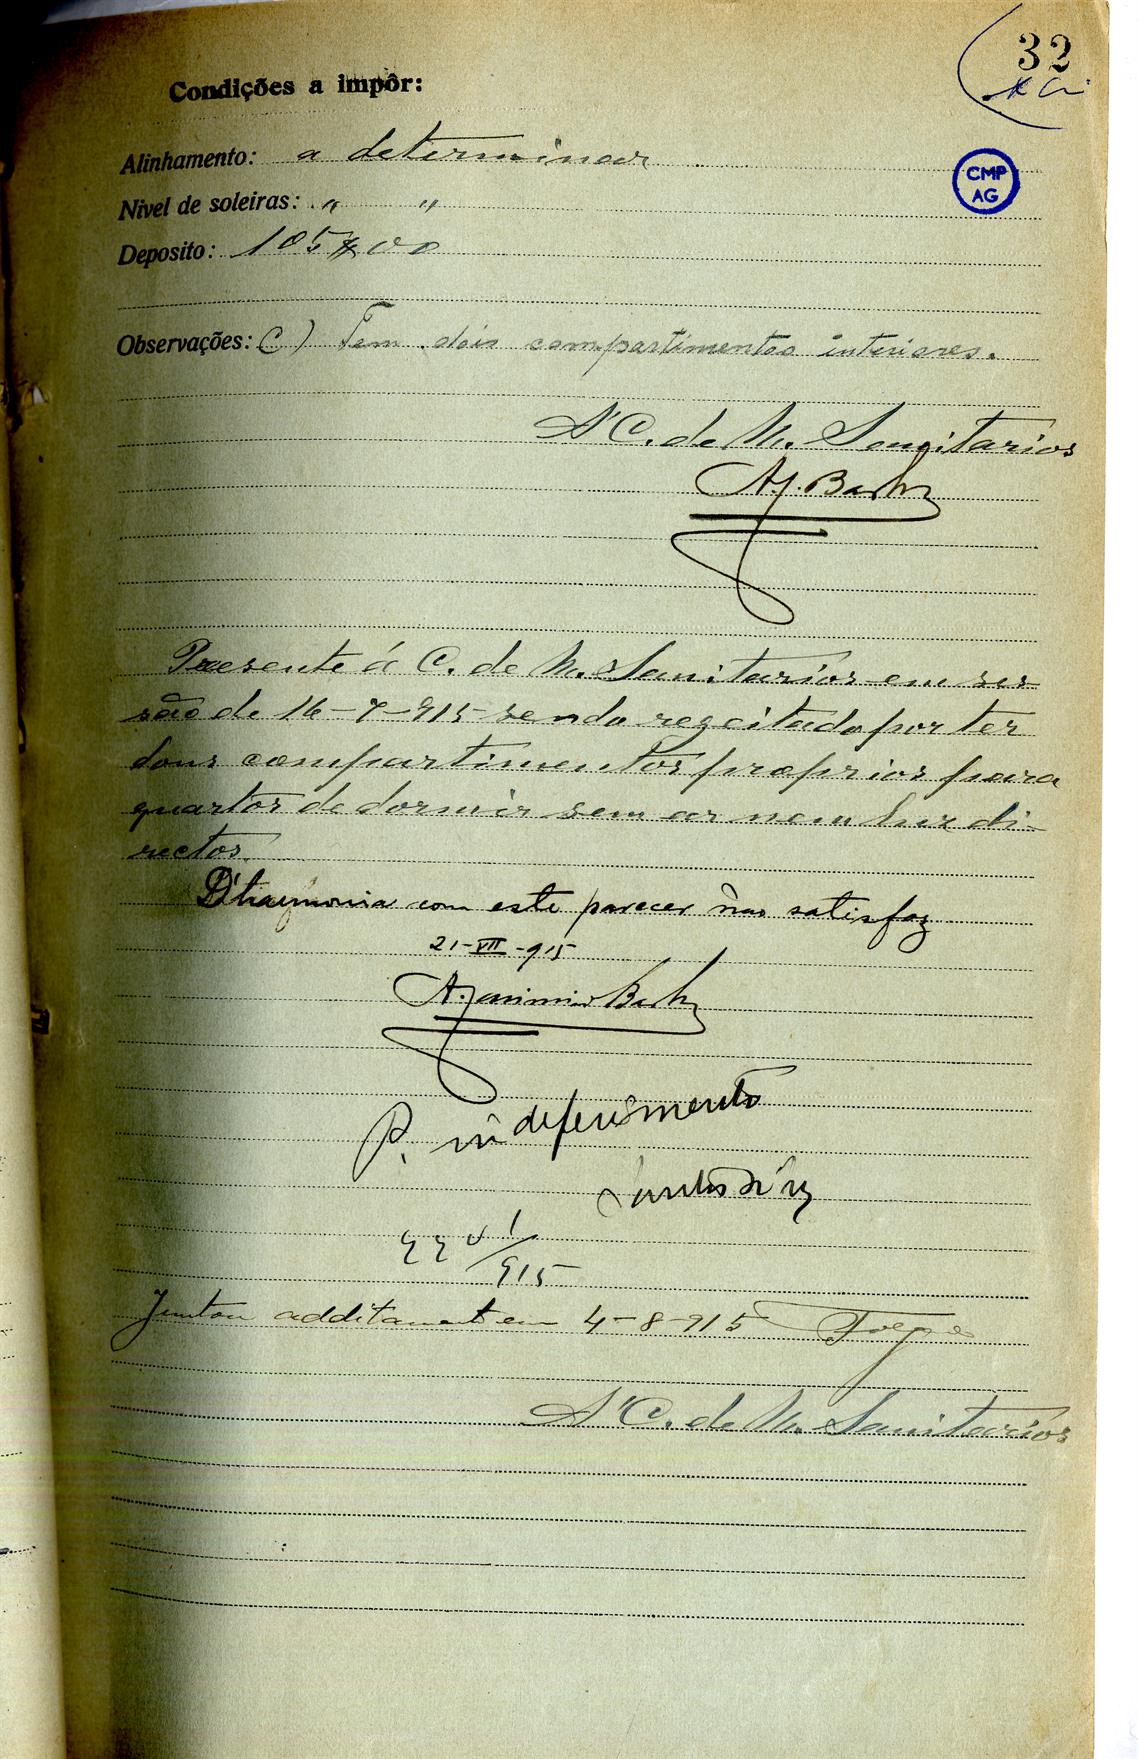 32
Condições a impôr:
CMP
AG
Alinhamento: a determinar
Nivel de soleiras: " "
Deposito: 105$00
Observações: C) Tem dois compartimentos interiores.
A' C. de M. Sanitarios
Presente á C. de M. Sanitarios em ses-
são de 16-7-915 sendo regeitado por ter
dous compartimentos proprios para
quartos de dormir sem ar nem luz di-
rectos.
D'harmonia com este parecer não satisfaz
21-VII-915
P. indeferimento
915
Juntou additamento em 4-8-915
A' C. de M. Sanitarios